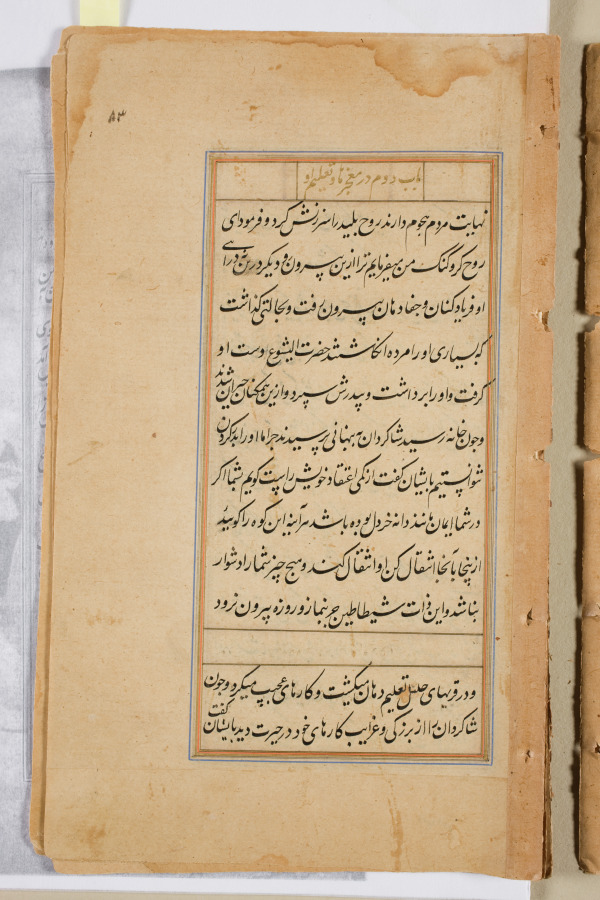 ۸۳
باب دوم در معجزها و تعلیم او
نهایت مردم هجوم دارند روح پلید را سرزنش کرد و فرمود ای
روح کر و گنگ من میفرمایم ترا ازین بیرون رو و دیگر درین نه درای
او فریاد کنان و جفا دهان بیرون رفت و بحالتی گذاشت
که بسیاری او را مرده انکاشتند حضرت ایشوع دست او
گرفت و اورا برداشت و پدرش سپرد و ازین همکنان حیران شدند
و چون خانه رسید شاکردان به پنهانی پرسیدند چرا ما اورا بدر کردن
نتوانستیم بایشان گفت از کمی اعتقاد خویش راست کویم شما اکر
در شما ایمان مانند دانه خردل بوده باشد هر آینه این کوه را کویید
از ینجا بآنجا انتقال کن او انتقال کند و هیچ چیز شما را دشوار
نباشد و این ذات شیطاطین جز بنماز و روزه بیرون نرود
و در قریهای جلیل تعلیم دهان میگشت و کارهای عجیب میکرد و چون
شاکردان را از بزرگی و غرایب کارهای خود در حیرت دید بایشان گفت